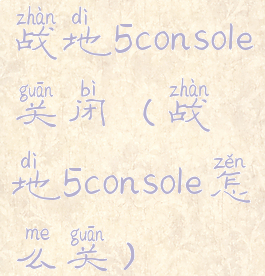 zhàn dì
战地5console
guān bì zhàn
关闭（战
dì zěn
地5console怎
me guān
么关）